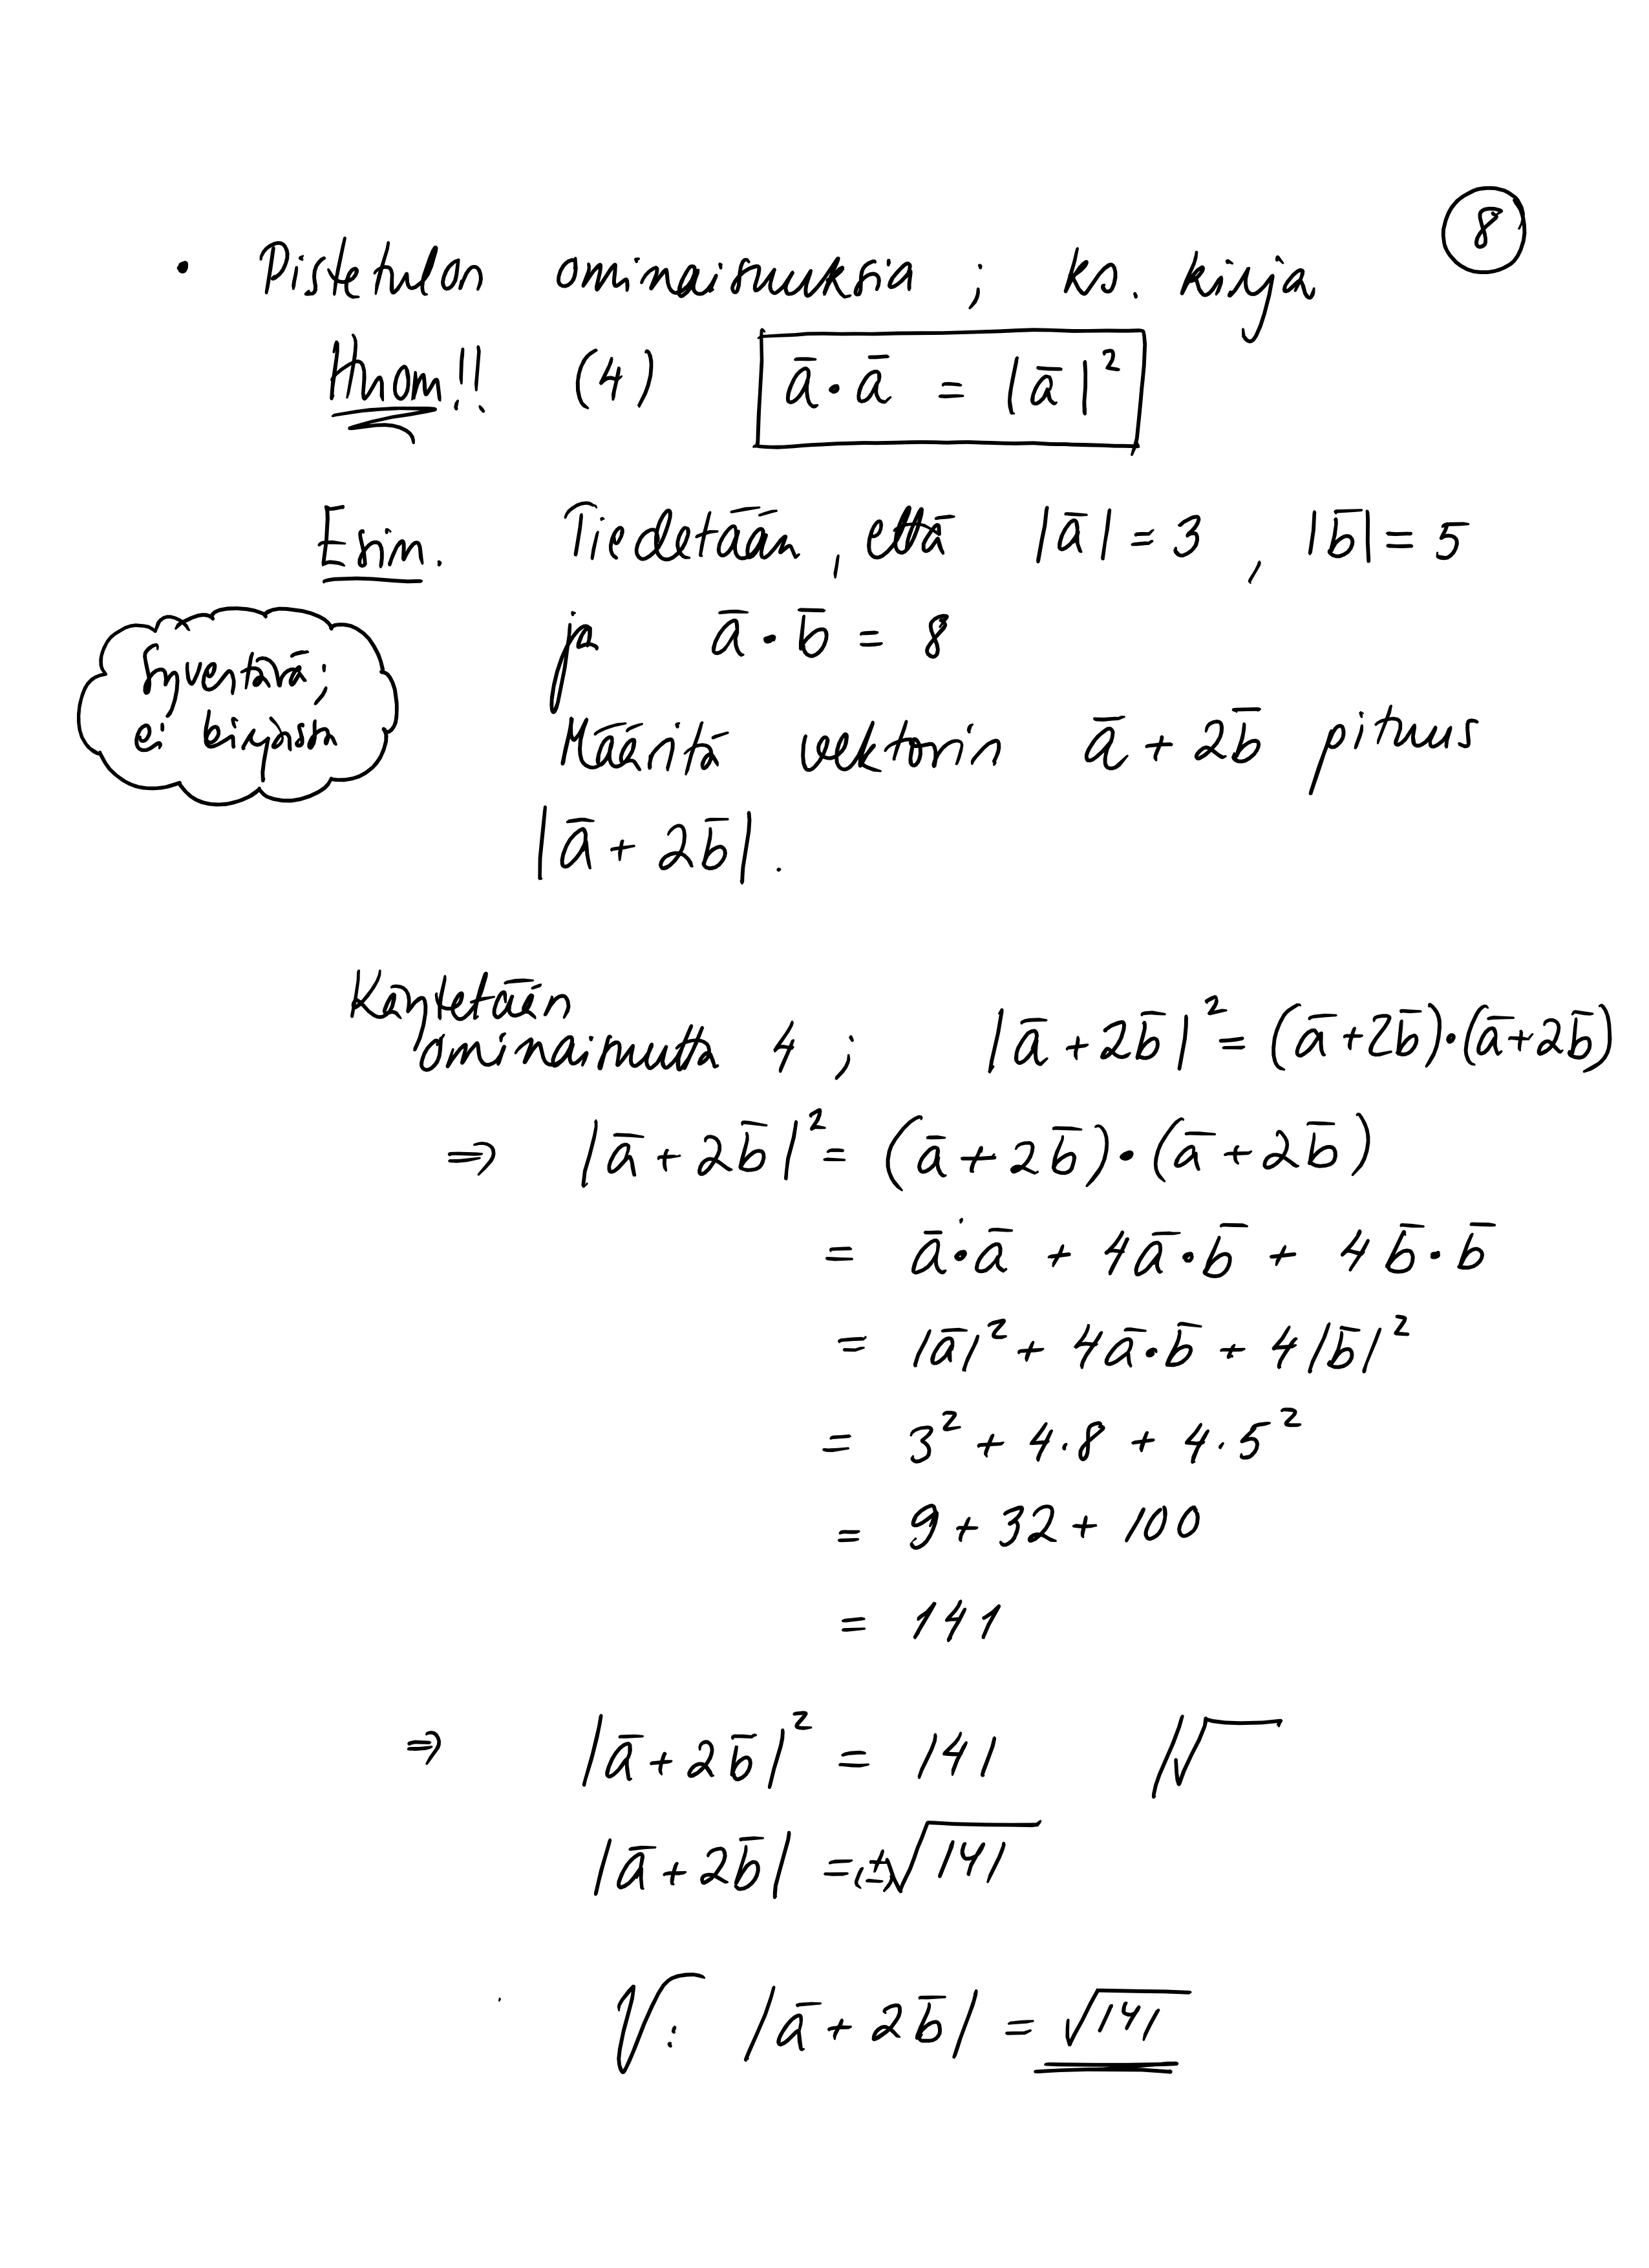 8
• Pistetulon ominaisuuksia ; ks. kirja
Huom!! (4) ā·ā = |ā|²
Esim. Tiedetään, että |ā| = 3 , |b̄| = 5
ja ā·b̄ = 8
Syventävä;
ei kirjassa
Määritä vektorin ā + 2b̄ pituus
|ā + 2b̄|.
Käytetään
ominaisuutta 4 ; |ā + 2b̄|² = (ā + 2b̄)·(ā + 2b̄)
⇒ |ā + 2b̄|² = (ā + 2b̄)·(ā + 2b̄)
= ā·ā + 4ā·b̄ + 4b̄·b̄
= |ā|² + 4ā·b̄ + 4|b̄|²
= 3² + 4·8 + 4·5²
= 9 + 32 + 100
= 141
⇒ |ā + 2b̄|² = 141 |√
|ā + 2b̄| = (±)√141
V: |ā + 2b̄| = √141